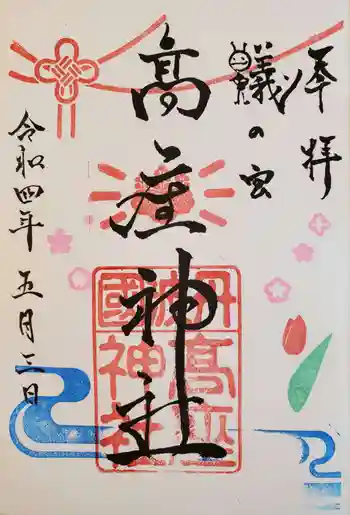 奉拝
蟻の宮
高座神社
丹波國
高座神社
令和四年
五月三日